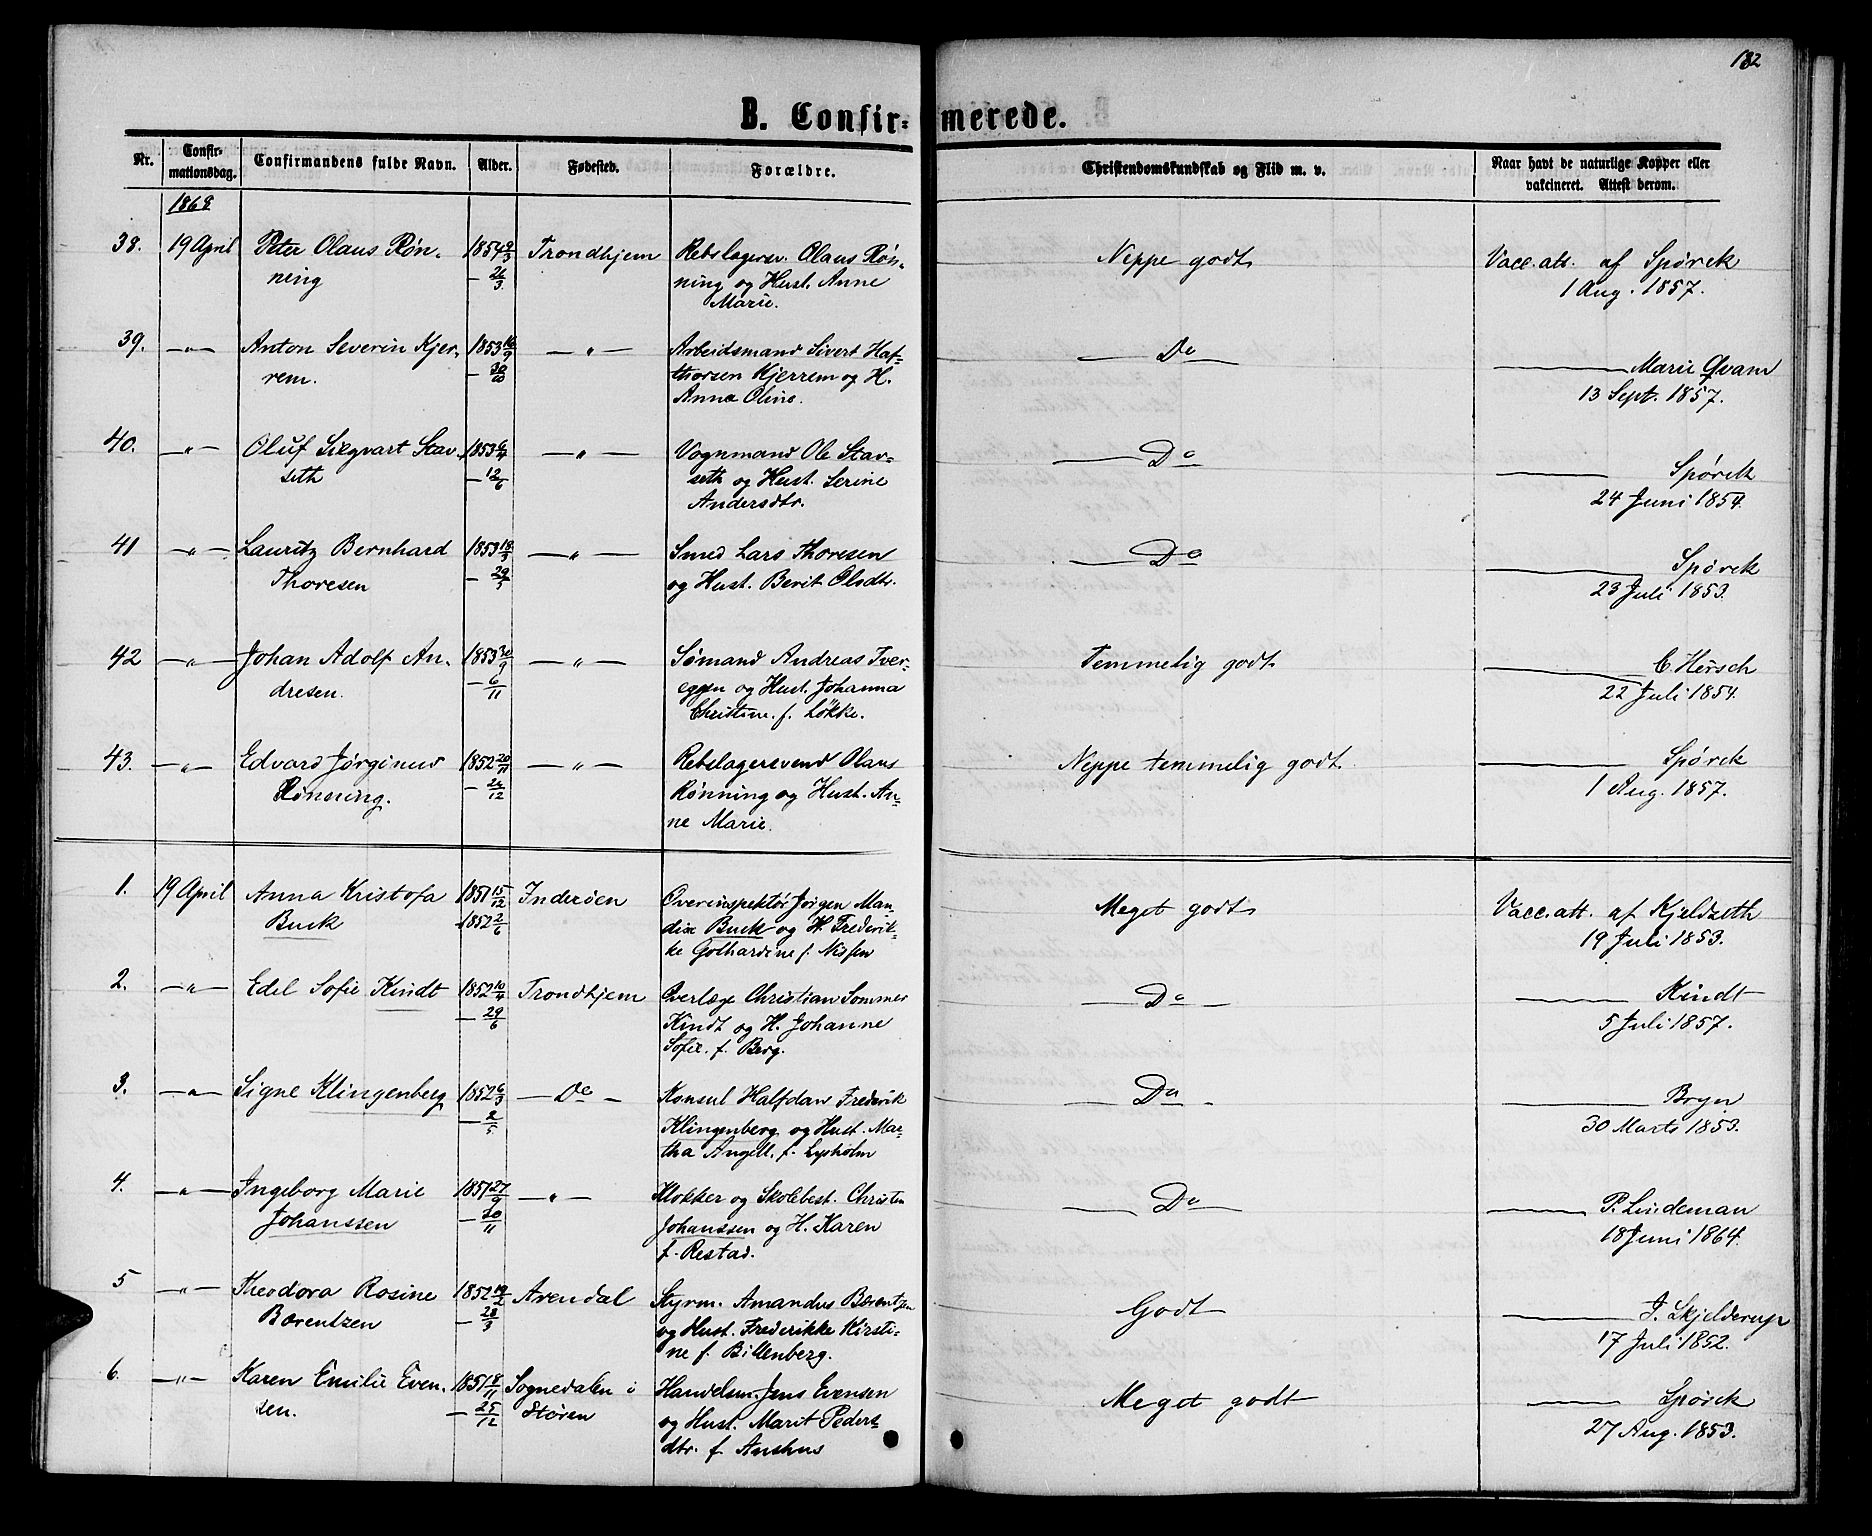 182
B. Confir=merede.
Nr.
Confir=
mationsdag.
Confirmandens fulde Navn.
Alder.
Fødested.
Forældre.
Christendomskundskab og Flid m. v.
Naar havt de naturlige Kopper eller
vakcineret. Attest derom.
1868
38. 19 April Peter Olaus Røn- 1854 9/3 Trondhjem Rebslagersv. Olaus Røn- Neppe godt Vacc. att. af Spørck
ning - 26/3 ning og Hust. Anne 1 Aug. 1857.
Marie.
39. —"— Anton Severin Kjer- 1853 16/9 —"— Arbeidsmand Sivert Haf- — Do — — Marie Qvam
rem. - 30/10 thorsen Kjerrem og H. 13 Sept. 1857.
Anna Oline.
40. —"— Oluf Sigvart Stav- 1853 6/4 —"— Vognmand Ole Stav- — Do — — Spørck
seth - 12/6 seth og Hust. Serine 24 Juni 1854.
Andersdtr.
41 —"— Lauritz Bernhard 1853 18/3 —"— Smed Lars Thoresen — Do — — Spørck
Thoresen - 29/5 og Hust. Berit Olsdtr. 23 Juli 1853.
42 —"— Johan Adolf An- 1853 30/9 —"— Sømand Andreas Tver- Temmelig godt — C. Hersch
dresen. - 6/11 eggen og Hust. Johanna 22 Juli 1854.
Christine. f. Løkke.
43. —"— Edvard Jørginus 1852 20/11 —"— Rebslagersvend Olaus Neppe temmelig godt. — Spørck
Rønning. - 26/12 Rønning og Hust. An- 1 Aug. 1857.
ne Marie.
1. 19 April Anna Kristofa 1851 15/12 Inderøen Overinspektør Jørgen Man- Meget godt Vacc. att. af Kjeldseth
Buck 1852 2/6 dix Buck og H. Frederik- 19 Juli 1853.
ke Gothardine f. Nissen
2. —"— Edel Sofie Kindt 1852 10/4 Trondhjem Overlæge Christian Sommer — Do — — Kindt
- 29/6 Kindt og H. Johanne 5 Juli 1857.
Sofie. f. Berg.
3. —"— Signe Klingenberg 1852 6/3 — Do — Konsul Halfdan Frederik — Do — — Bryn
- 2/5 Klingenberg og Hust. Mar- 30 Marts 1853.
tha Angell. f. Lysholm
4. —"— Ingeborg Marie 1851 27/9 —"— Klokker og Skolebest. Christen — Do — — P. Lindeman
Johanssen - 30/11 Johanssen og H. Karen 18 Juni 1864.
f. Restad.
5 —"— Theodora Rosine 1852 19/2 Arendal Styrm. Amandus Bærentzen Godt — J. Skjelderup
Bærentzen - 28/3 og Hust. Frederikke Kirsti- 17 Juli 1852.
ne f. Billenberg.
6. —"— Karen Emilie Even- 1851 18/11 Sognedalen i Handelsm. Jens Evensen Meget godt — Spørck
sen. - 25/12 Støren og Hust. Marit Peders- 27 Aug. 1853.
dtr. f. Aushus